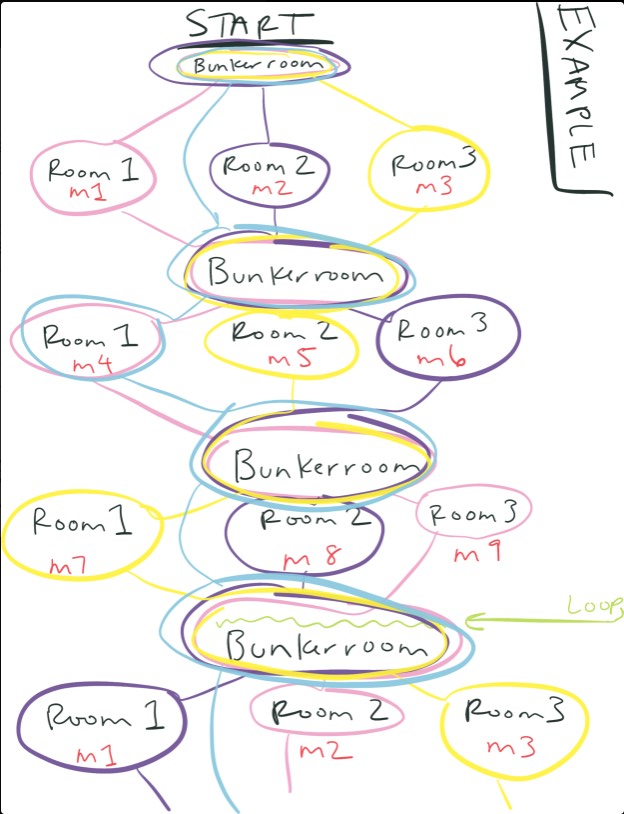 START
EXAMPLE
Bunkerroom
Room 1
m1
Room 2
m2
Room 3
m3
Bunkerroom
Room 1
m4
Room 2
m5
Room 3
m6
Bunkerroom
Room 1
m7
Room 2
m8
Room 3
m9
LOOP
Bunkerroom
Room 1
m1
Room 2
m2
Room 3
m3